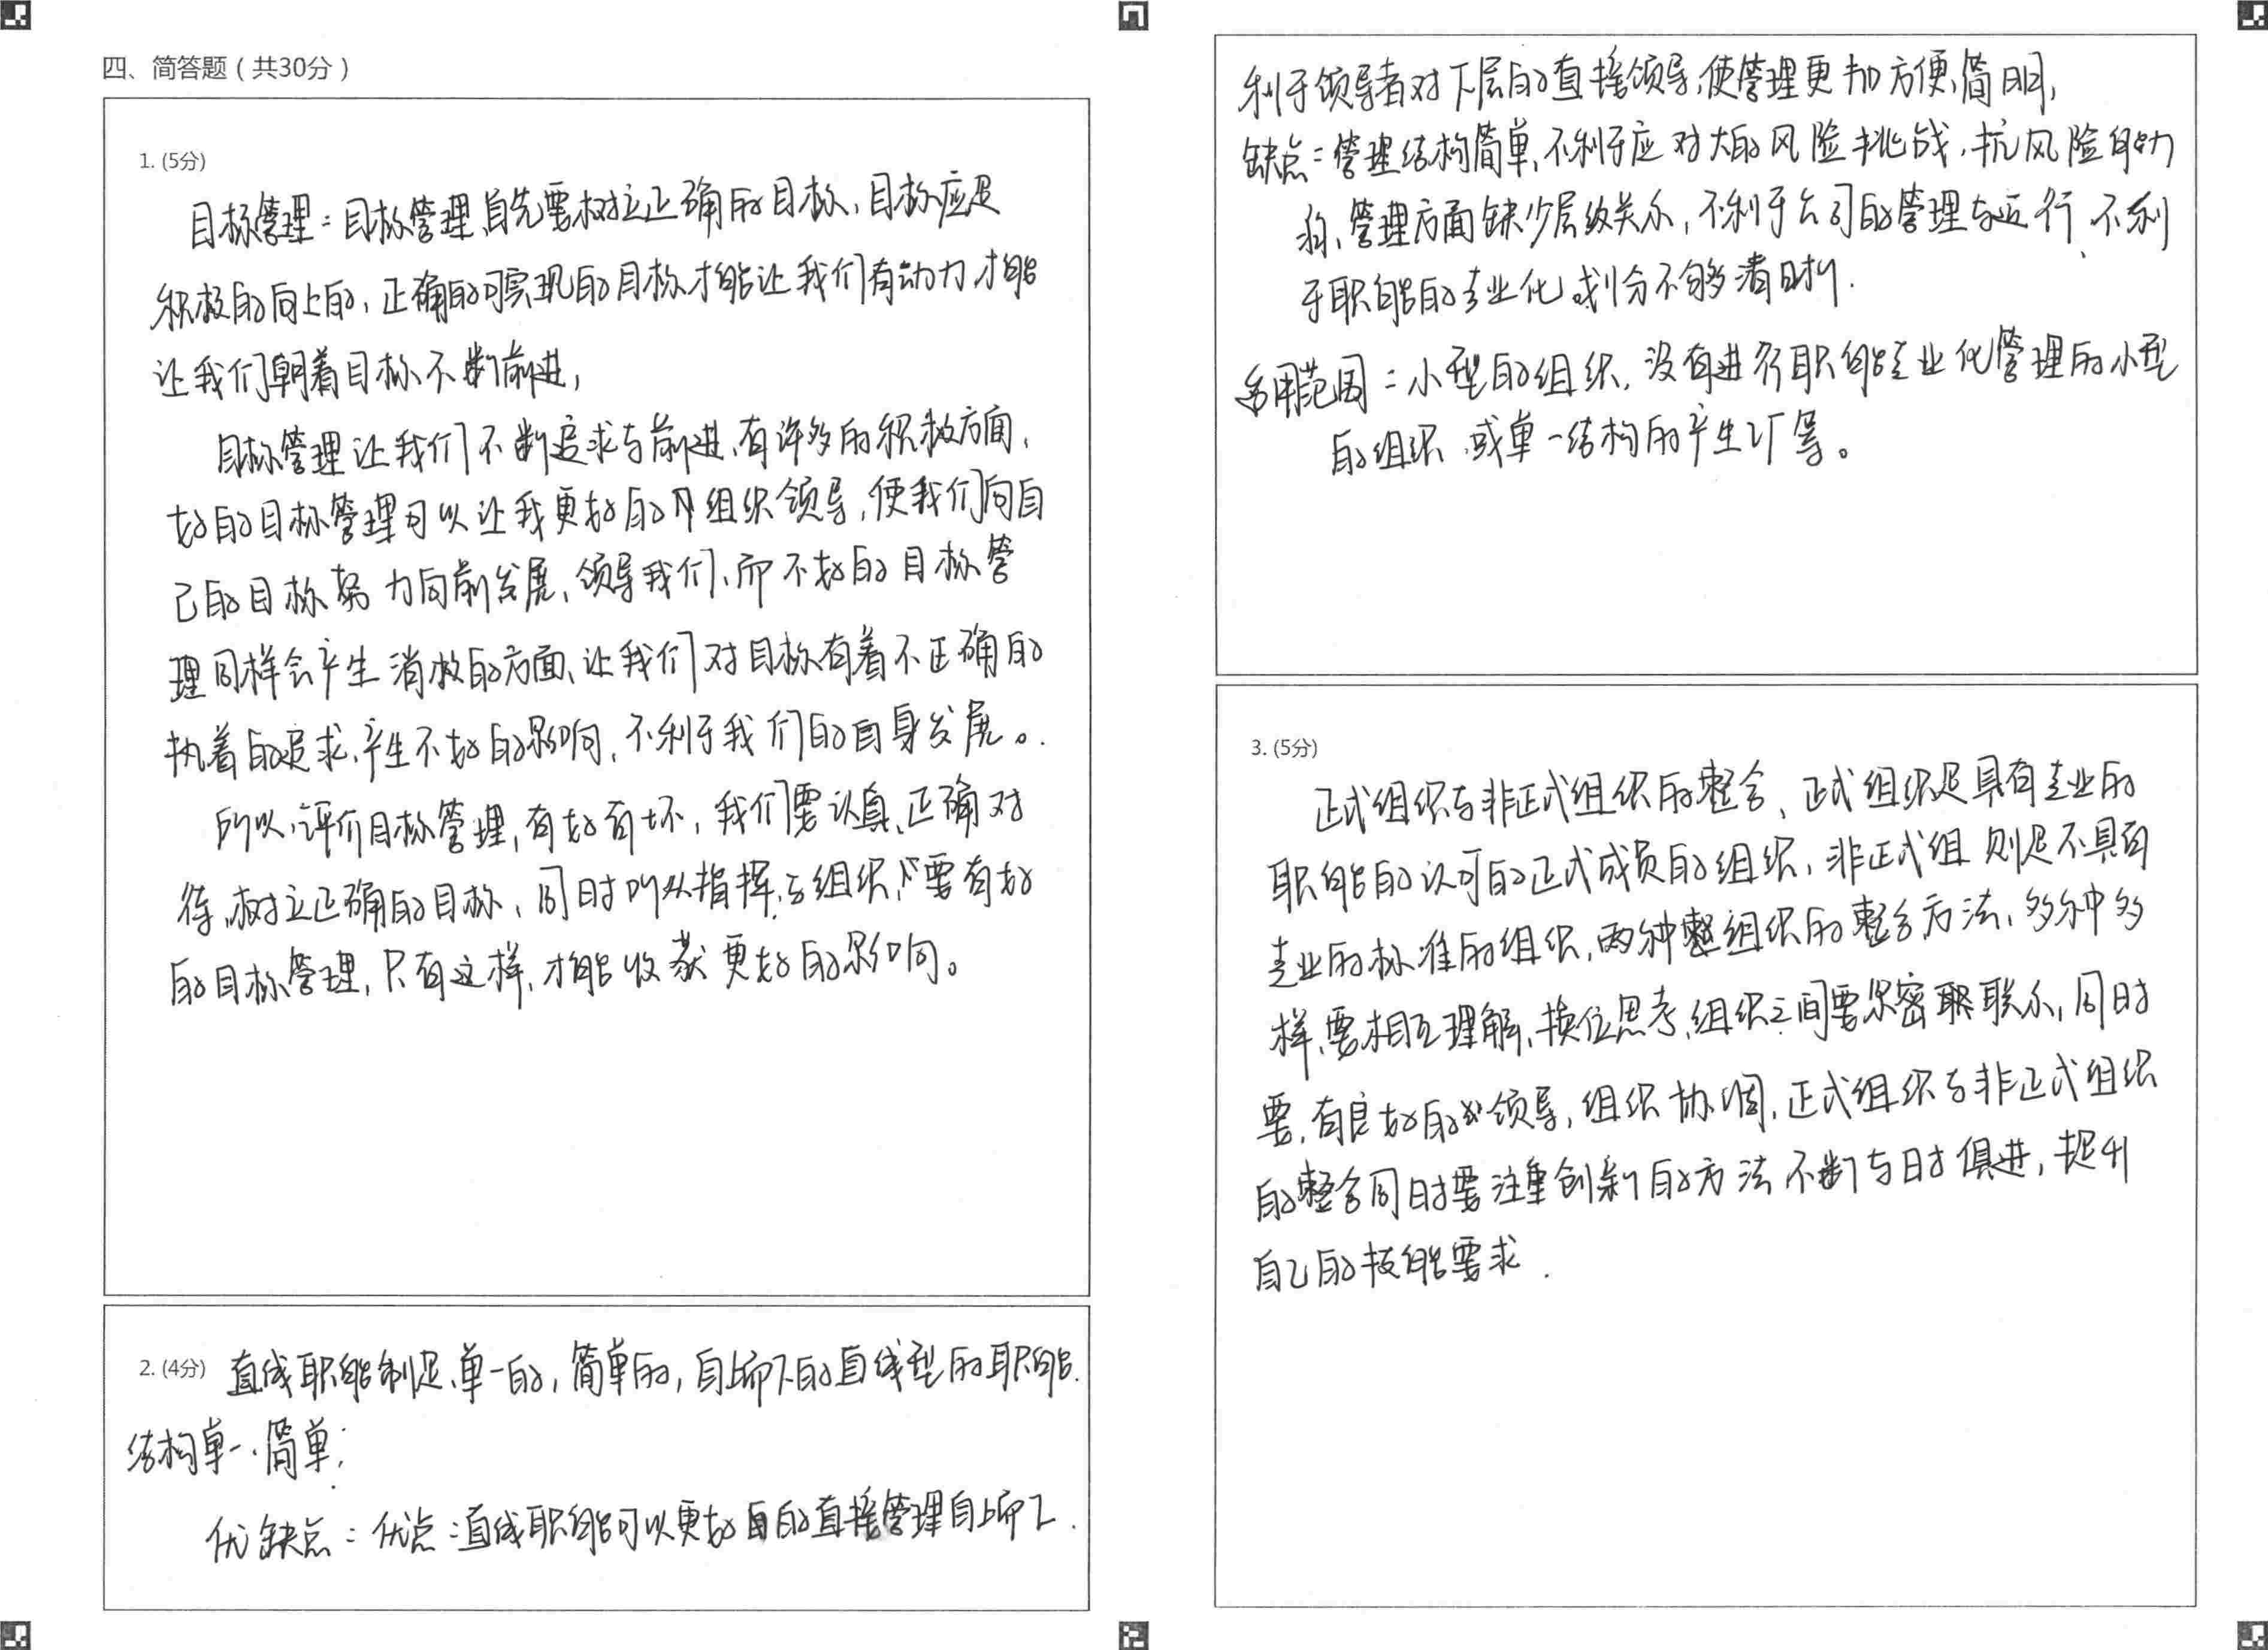 四、简答题（共30分）
1. (5分)
目标管理：目标管理、首先要树立正确的目标、目标应是
积极的向上的，正确的可实现的目标才能让我们有动力才能
让我们朝着目标不断前进，
目标管理让我们不断追求与前进、有许多的积极方面、
好的目标管理可以让我更好的组织领导，使我们向自
己的目标努力向前发展、领导我们、而不好的目标管
理同样会产生消极的方面、让我们对目标有着不正确的
执着的追求、产生不好的影响，不利于我们的自身发展。
所以，评价目标管理，有好有坏，我们要认真、正确对
待、树立正确的目标，同时所以指挥、与组织、要有好
的目标管理，只有这样，才能收获更好的影响。
2. (4分) 直线职能制是、单一的，简单的，自上而下的直线型的职能.
结构单一、简单；
优缺点：优点：直线职能可以更好的直接管理自上而下.
利于领导者对下层的直接领导，使管理更加方便、简明，
缺点：管理结构简单、不利于应对大的风险挑战，抗风险能力
弱、管理方面缺少层级关系，不利于公司的管理与运行、不利
于职能的专业化划分不够清晰.
适用范围：小型的组织、没有进行职能专业化管理的小型
的组织、或单一结构的产生厂等。
3. (5分)
正式组织与非正式组织的整合、正式组织是具有专业的
职能的认可的正式成员的组织，非正式组则是不具有
专业的标准的组织，两种组织的整合方法、多种多
样、要相互理解、换位思考、组织之间要紧密联系，同时
要，有良好的领导，组织协调，正式组织与非正式组织
的整合同时要注重创新的方法不断与时俱进，提升
自己的技能要求.